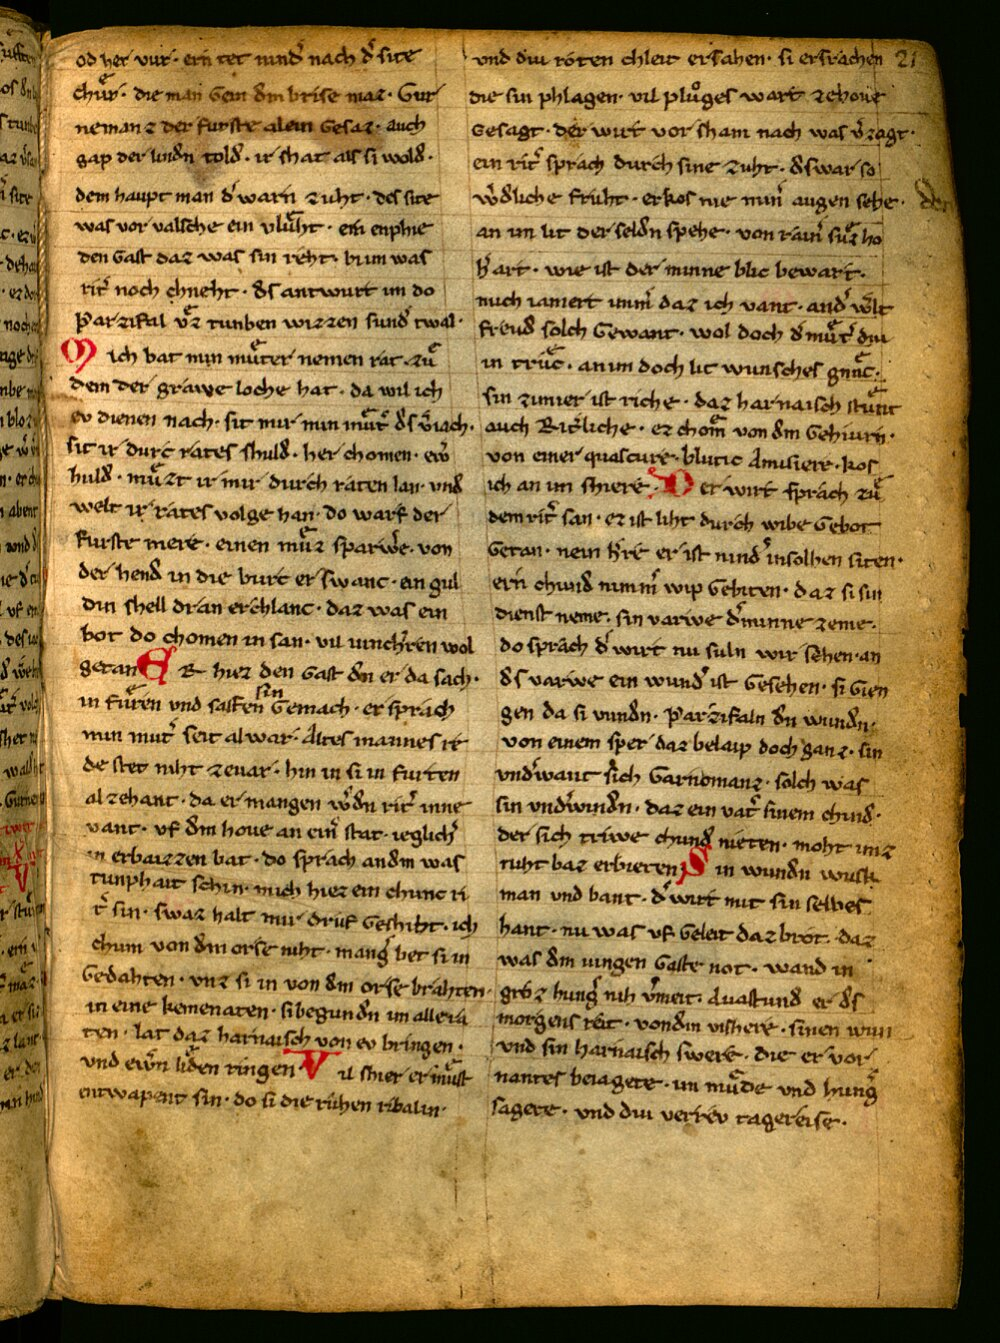 od her vur · ern tet nindˀ nach dˀ site
chuͤr · die man gein dˀm brise maz · Gur
nemanz der furste alein Gesaz · auch
gap der lindn toldˀ · ir shat als si woldˀ ·
dem haupt man dˀ warn zuht · des site
was vor valsche ein vluͤht · ein enphie
den Gast daz was sin reht · bi im was
ritˀ noch chneht · dˀs antwurt im do
Parzifal vͤz tunben wizzen sundˀ twal ·
Mich bat min muͤter nemen rat zuͤ
dem der grawe loche hat · da wil ich
ev dienen nach · sit mir min muͤtˀ dˀs vˀiach ·
sit ir durc rates shuldˀ · her chomen · ewˀ
huldˀ · muͤzt ir mir durch raten lan · vnd
welt ir rates volge han · do warf der
furste mere · einen muͤz sparwˀe · von
der hendˀ in die burc er swanc · ein gul
din shell dran erchlanc · daz was ein
bot do chomen in san · vil iunchˀren wol
getan ER hiez den Gast dn er da sach ·
in fuͤren vnd saffen sin Gemach · er sprach
min mutˀ seit al war · Altes mannes re
de stet niht zevar · hin in si in furten
al zehant · da er mangen wˀdn ritˀ inne
vant · vf dˀm houe an einˀ stat · ieglichˀ
in erbaizzen bat · do sprach an dˀm was
tunphait schin · mich hiez ein chunc ri
tˀ sin · swaz halt mir druf Geshiht · ich
chum von dˀm orse niht · mangˀ bet si in
Gedahten · vnz si in von dˀm orse brahten ·
in eine kemenaten · si begundn im alle ra
ten · lat daz harnaisch von ev bringen ·
vnd ewˀn liden ringen Vil shier er muͤst
entwapent sin · do si die ruhen ribalin ·
vnd diu roten chleit ersahen · si ersrachen 21
die sin phlagen · vil pluͦges wart zehoue
Gesagt · der wirt vor sham nach was vˀzagt ·
ein ritˀ sprach durch sine zuht · dˀswar so
wˀdliche fruht · erkos nie minˀ augen sehe ·
an im lit der seldn spehe · von rainˀ suͤz ho
hˀ art · wie ist der minne blic bewart ·
mich iamert immˀ daz ich vant · andˀ wˀlt
freudˀ solch Gewant · wol doch dˀ muͤtˀ diu
in truͤc · an im doch lit wunsches gnuͤc ·
sin zimier ist riche · daz harnaisch stuͤnt
auch Ritˀliche · ez chom von dˀm Gehiurn ·
von einer quascure · blutic Amisiere · kos
ich an im shiere · Der wirt sprach zuͤ
dem ritˀ san · ez ist liht durch wibe Gebot
Getan · nein hˀre er ist nindˀ in solhen siten ·
ern chund nimmˀ wip Gebiten · daz si sin
dienst neme · sin varwe dˀ minne zeme ·
do sprach dˀ wirt nu suln wir sehen · an
dˀs varwe ein wundˀ ist Gesehen · si Gien
gen da si vundn · Parzifaln dn wundn ·
von einem sper daz belaip doch ganz · sin
vndˀwant sich Garnomanz · solch was
sin vndˀwindn · daz ein vatˀ sinem chindˀ ·
der sich triwe chund nieten · moht imz
niht baz erbieten Sin wundn wusk
man vnd bant · dˀ wirt mit sin selbes
hant · nu was vf Geleit daz brot · daz
was dˀm iungen Gaste not · wand in
groz hungˀ nih vˀmeit · Auastundˀ er dˀs
morgens reit · von dˀm vishere · sinen wun
vnd sin harnaisch swere · die er vor
nantes beiagete · im muͤde vnd hungˀ
sagete · vnd diu verrev tagereise ·